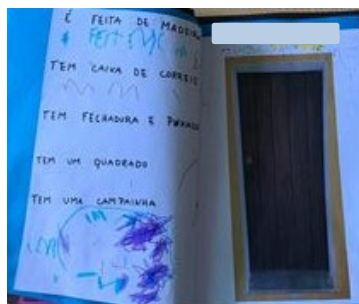 É FEITA DE MADEIRA
TEM CAIXA DE CORREIO
TEM FECHADURA E PUXADOR
TEM UM QUADRADO
TEM UMA CAMPAINHA